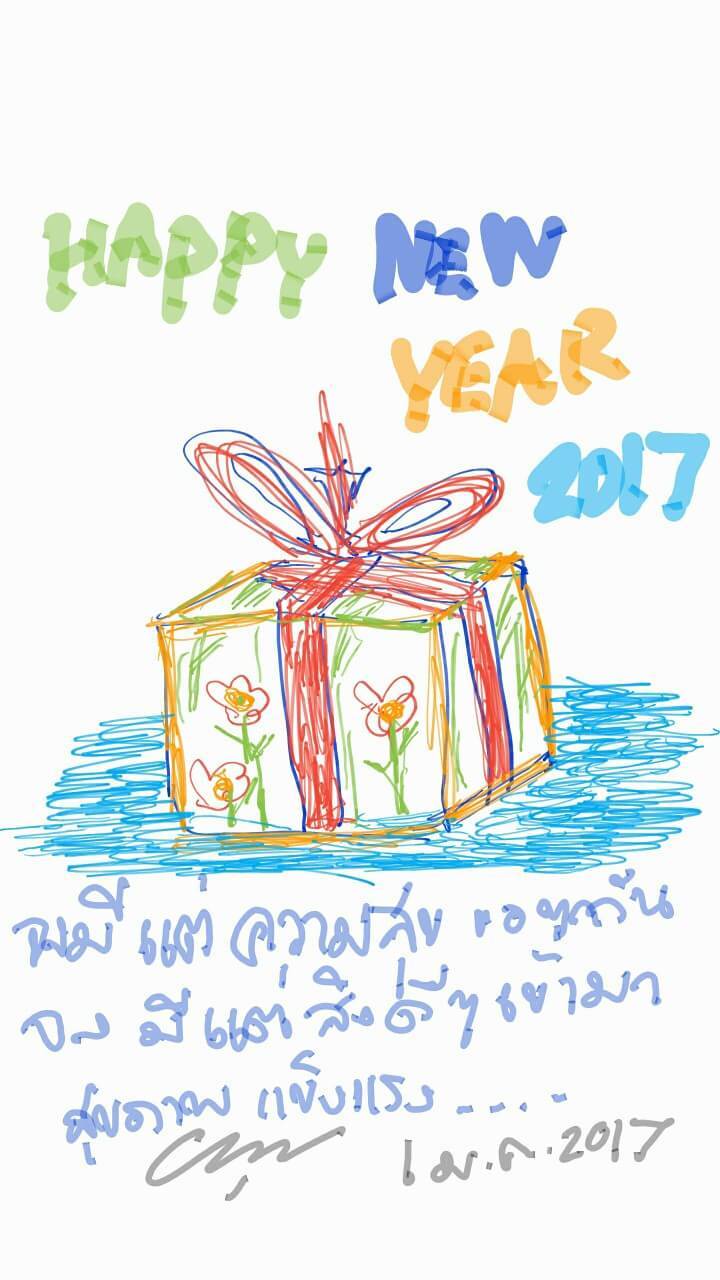 HAPPY NEW
YEAR
2017
มีแต่ ความสุข
จง มีแต่สิ่งดีๆ เข้ามา
สุขภาพ แข็งแรง....
1 ม.ค. 2017